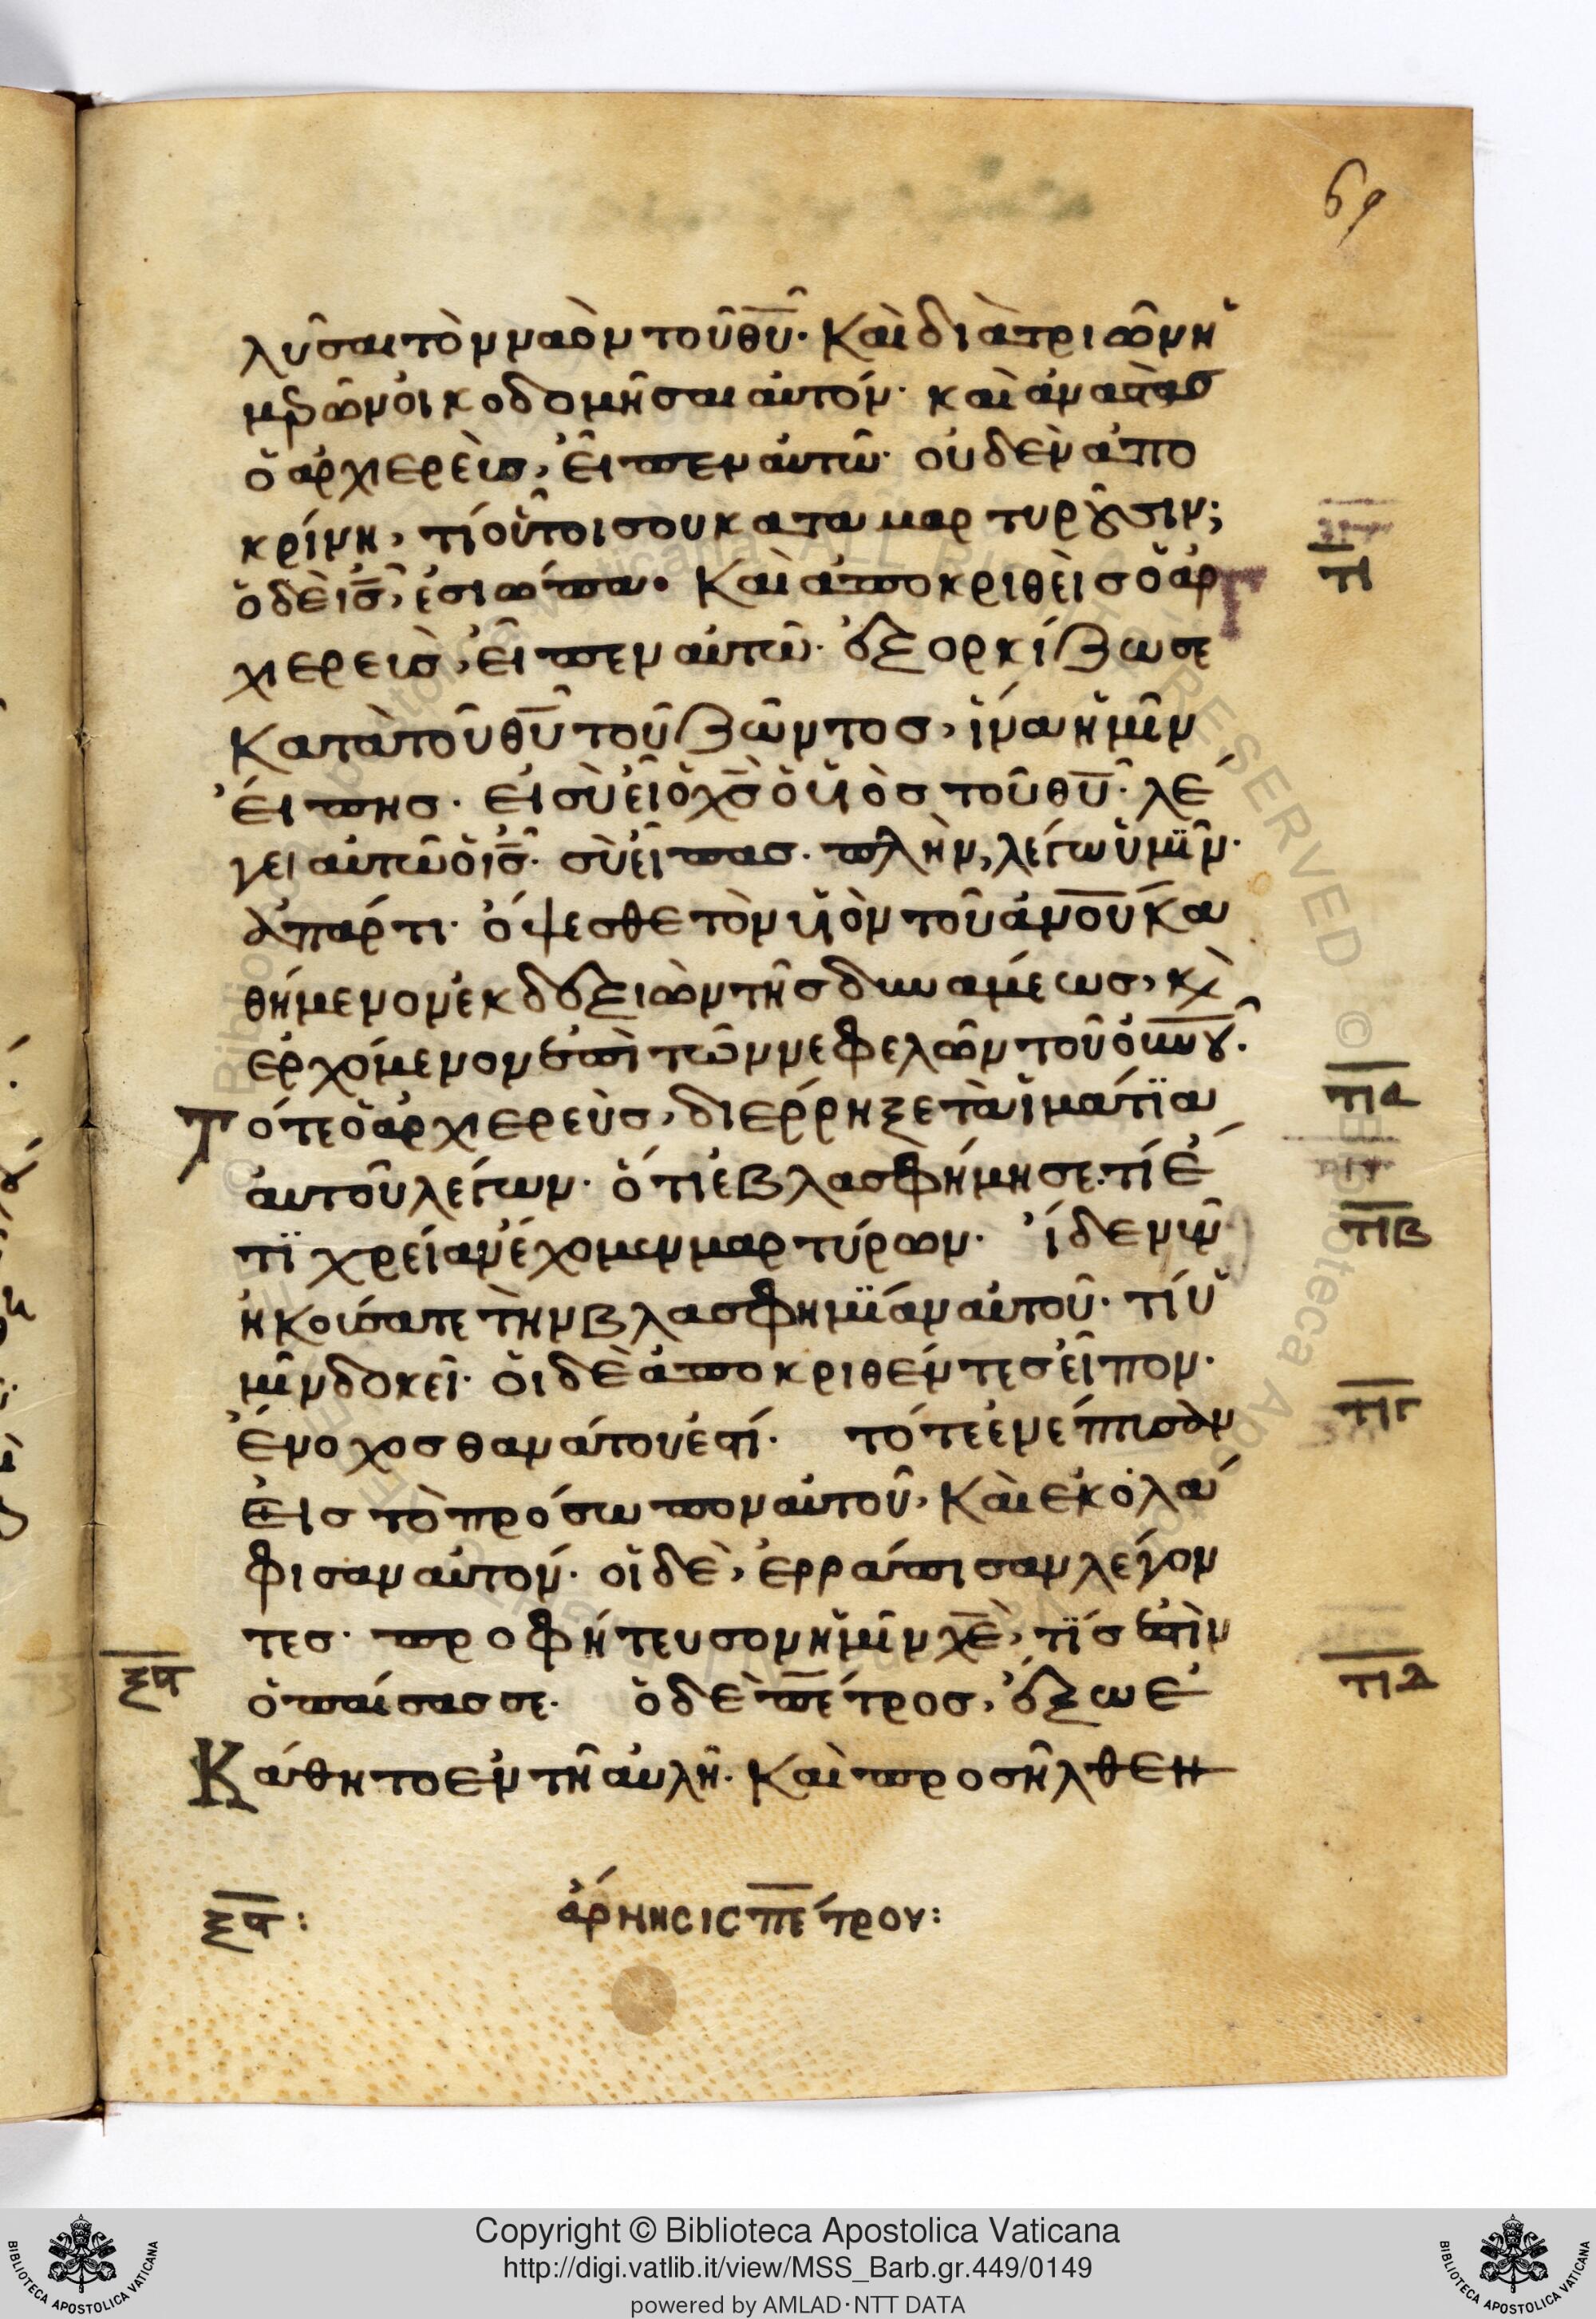 69
λῦσαι τὸν ναὸν τοῦ θῦ· Καὶ διὰ τριῶν ἡ
μερῶν οἰκοδομῆσαι αὐτόν· καὶ ἀναστὰσ
ὁ ἀρχιερεὺσ, εἶπεν αὐτῶ· οὐδὲν ἀπο
κρίνη, τί οὗτοι σου καταμαρτυροῦσιν;
π
ὁ δὲ ισ, ἐσιώπα· Καὶ ἀποκριθεὶσ ὁ ἀρ
χιερεὺσ, εἶπεν αὐτῶ· ἐξορκίζω σε
Κατὰ τοῦ θυ τοῦ ζῶντοσ, ἵνα ἡμῖν
εἴπησ· εἰ σὺ εἶ ὁ χσ ὁ υἱὸσ τοῦ θυ· λέ
γει αὐτῶ ὁ ισ· σὺ εἶπασ· πλὴν, λέγω ὑμῖν·
ἀπάρτι· ὄψεσθε τὸν υἱὸν τοῦ ἀνου κα
θήμενον ἐκ δεξιῶν τῆσ δυναμέωσ, κὶ
ἐρχόμενον ἐπὶ τῶν νεφελῶν τοῦ οὐνοῦ·
Τότε ὁ ἀρχιερεὺσ, διέρρηξε τὰ ἱμάτϊα
πα
αὐτοῦ λέγων· ὅτι ἐβλασφήμησε· τί ἔ
τϊ χρείαν ἔχομεν μαρτύρων· ἴδε νῦν
πβ
ἠκούσατε τὴν βλασφημΐαν αὐτοῦ· τί ὑ
μῖν δοκεῖ· οἱ δὲ ἀποκριθέντεσ εἶπον·
ἔνοχοσ θανάτου ἐστί· τότε ἐνέπτυσαν
πγ
εἰσ τὸ πρόσωπον αὐτοῦ, Καὶ ἐκολά
φισαν αὐτόν· οἱ δὲ, ἐρράπισαν λέγον
τεσ· προφήτευσον ἡμῖν χε, τίσ ἐστὶν
ξα ὁ παίσασ σε· ὁ δὲ πέτροσ, ἔξω ἐ
πδ
Κάθητο ἐν τῆ αὐλῆ· Καὶ προσῆλθεν
ξα: ἄρνησισ πέτρου:
Copyright © Biblioteca Apostolica Vaticana
http://digi.vatlib.it/view/MSS_Barb.gr.449/0149
powered by AMLAD·NTT DATA
BIBLIOTECA APOSTOLICA VATICANA
BIBLIOTECA APOSTOLICA VATICANA